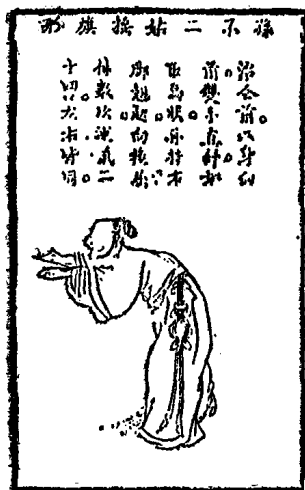 孫不二姑搖旗形
治仝前。以身
前雙手直舒如
取物狀。再將右
脚翹起。向後
伸數次。運氣二
十四口。左右皆同。